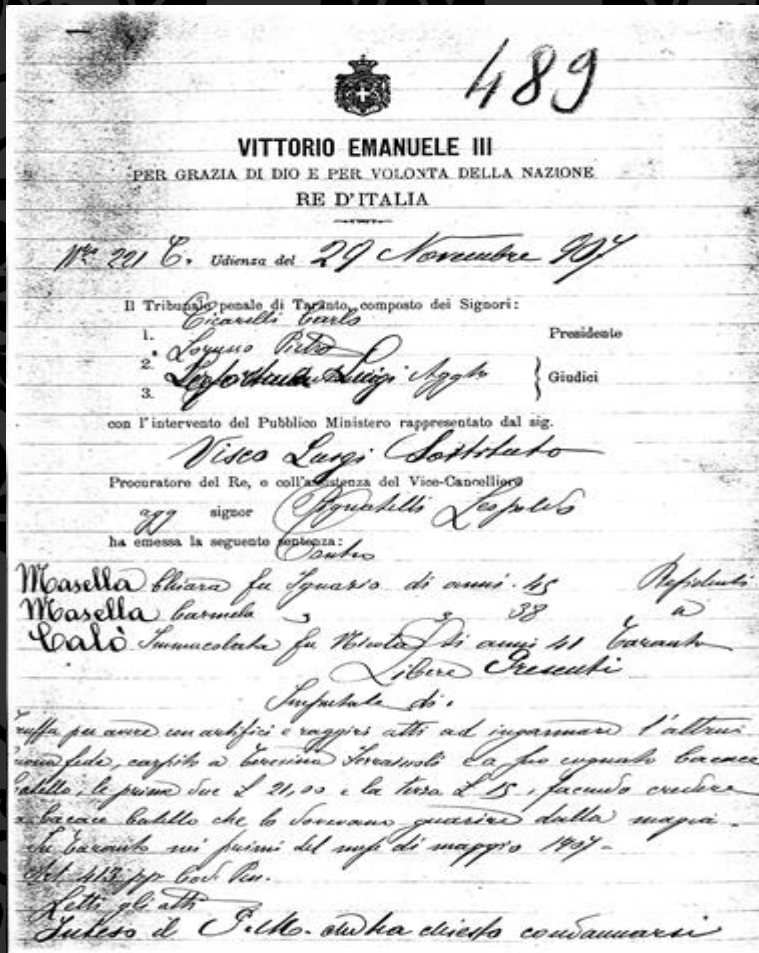 489
VITTORIO EMANUELE III
PER GRAZIA DI DIO E PER VOLONTA DELLA NAZIONE
RE D'ITALIA
Nº 221 C. Udienza del 29 Novembre 907
Il Tribunale penale di Taranto, composto dei Signori:
Cicarelli Carlo
1. Presidente
Lorusso Pietro
2. Luigi Aggto Giudici
3.
con l'intervento del Pubblico Ministero rappresentato dal sig.
Visco Luigi Sostituto
Procuratore del Re, e coll'assistenza del Vice-Cancelliere
agg signor Pignatelli Leopoldo
ha emessa la seguente sentenza:
Contro
Masella Chiara fu Ignazio di anni 45 Residenti
Masella Carmela " " 38 a
Calò Immacolata fu Nicola di anni 41 Taranto
Libere Presenti
Imputate di:
truffa per avere con artifici e raggiri atti ad ingannare l'altrui
buona fede, carpito a a suo cognato Cacace
Catello, le prime due L 21,00 e la terza L 15, facendo credere
a Cacace Catello che lo dovevano guarire dalla magia.
In Taranto nei primi del mese di maggio 1907-
Art 413 pp Cod. Pen.
Letti gli atti
Inteso il P.M. che ha chiesto condannarsi